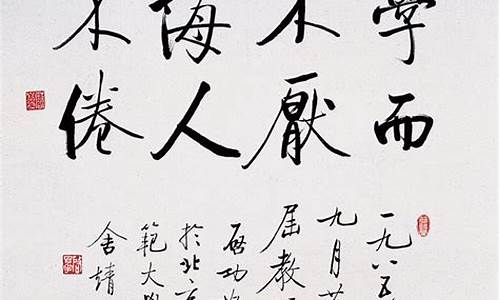 學而
不厭
誨人
不倦
一九八五
九月
屆教
啟功
於北
範大
舍靖